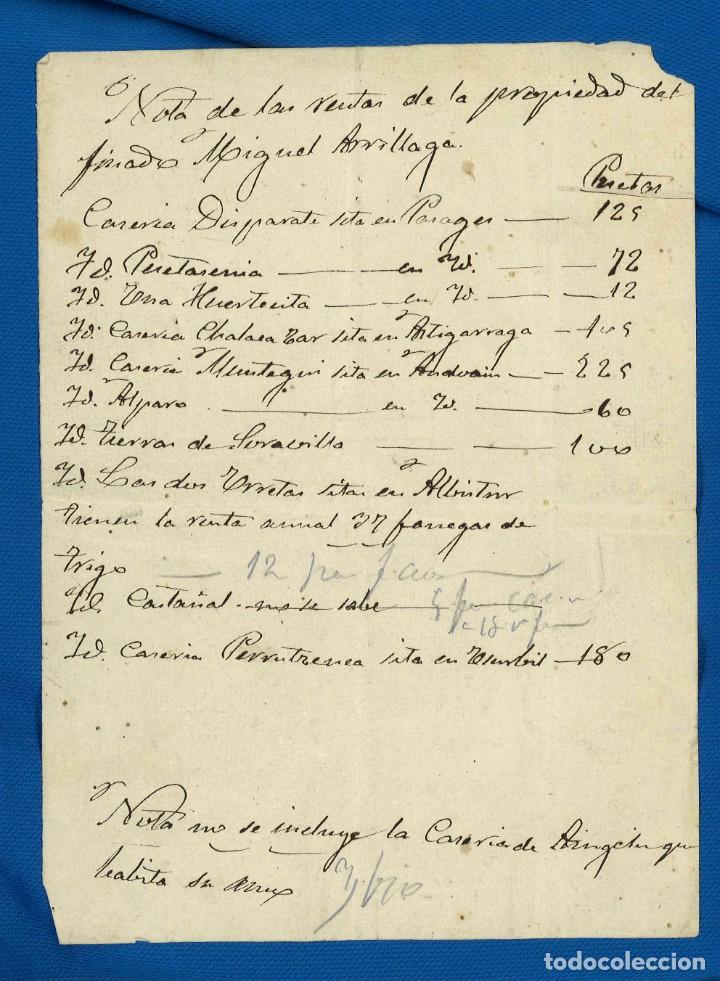 Nota de las rentas de la propiedad del
finado Miguel Arrillaga.
Pesetas
Caseria Disparate sita en Pasages — 125
Id. Pesetarenia — en Id. — 72
Id. Una Huertecita — en Id. — 12
Id. Caseria Chalaca sita en Astigarraga — 105
Id. Caseria Muntegui sita en Andoain — 225
Id. Alparo — en Id. — 60
Id. tierras de Soravilla — 100
Id. Las dos Erretas sitas en Albistur
tienen la renta annual 37 fanegas de
trigo — 12
Id. Castañal - no se sabe
Id. Caseria Perrutzenea sita en Usurbil — 180
Nota no se incluye la Caseria de que
habita su
todocoleccion